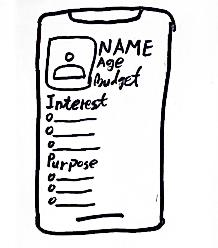 NAME
Age
Budget
Interest
Purpose